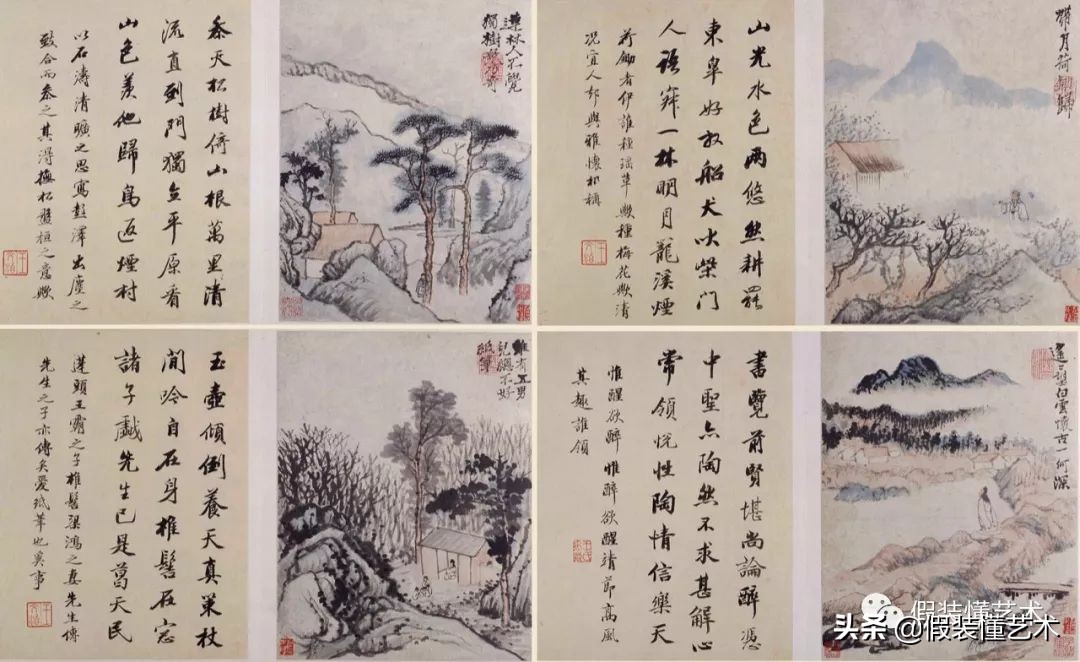 參天松樹倚山根萬里清
流直到門獨立平原看
山色羨他歸鳥返煙村
以石濤清曠之思寫彭澤出塵之
致合而參之其得撫松盤桓之意歟
連林人不覺
獨樹眾乃奇
山光水色兩悠然耕罷
東皋好放船犬吠柴門
人語寂一林明月龍溪煙
荷鋤者伊誰種瑶草歟種梅花歟清
况宜人却與雅懷相稱
帶月荷鋤歸
玉壺傾倒養天真策杖
閒吟自在身椎髻在
諸子戲先生已是葛天民
蓬頭王霸之子椎髻梁鴻之妻先生傳
先生之子亦傳矣愛紙筆也奚事
雖有五男
兒總不好
紙筆
書覽前賢堪尚論醉憑
中聖亦陶然不求甚解心
常領悅性陶情信樂天
惟醒欲醉惟醉欲醒靖節高風
其趣誰領
遙望白雲懷古一何深
假装懂艺术
头条 @假装懂艺术